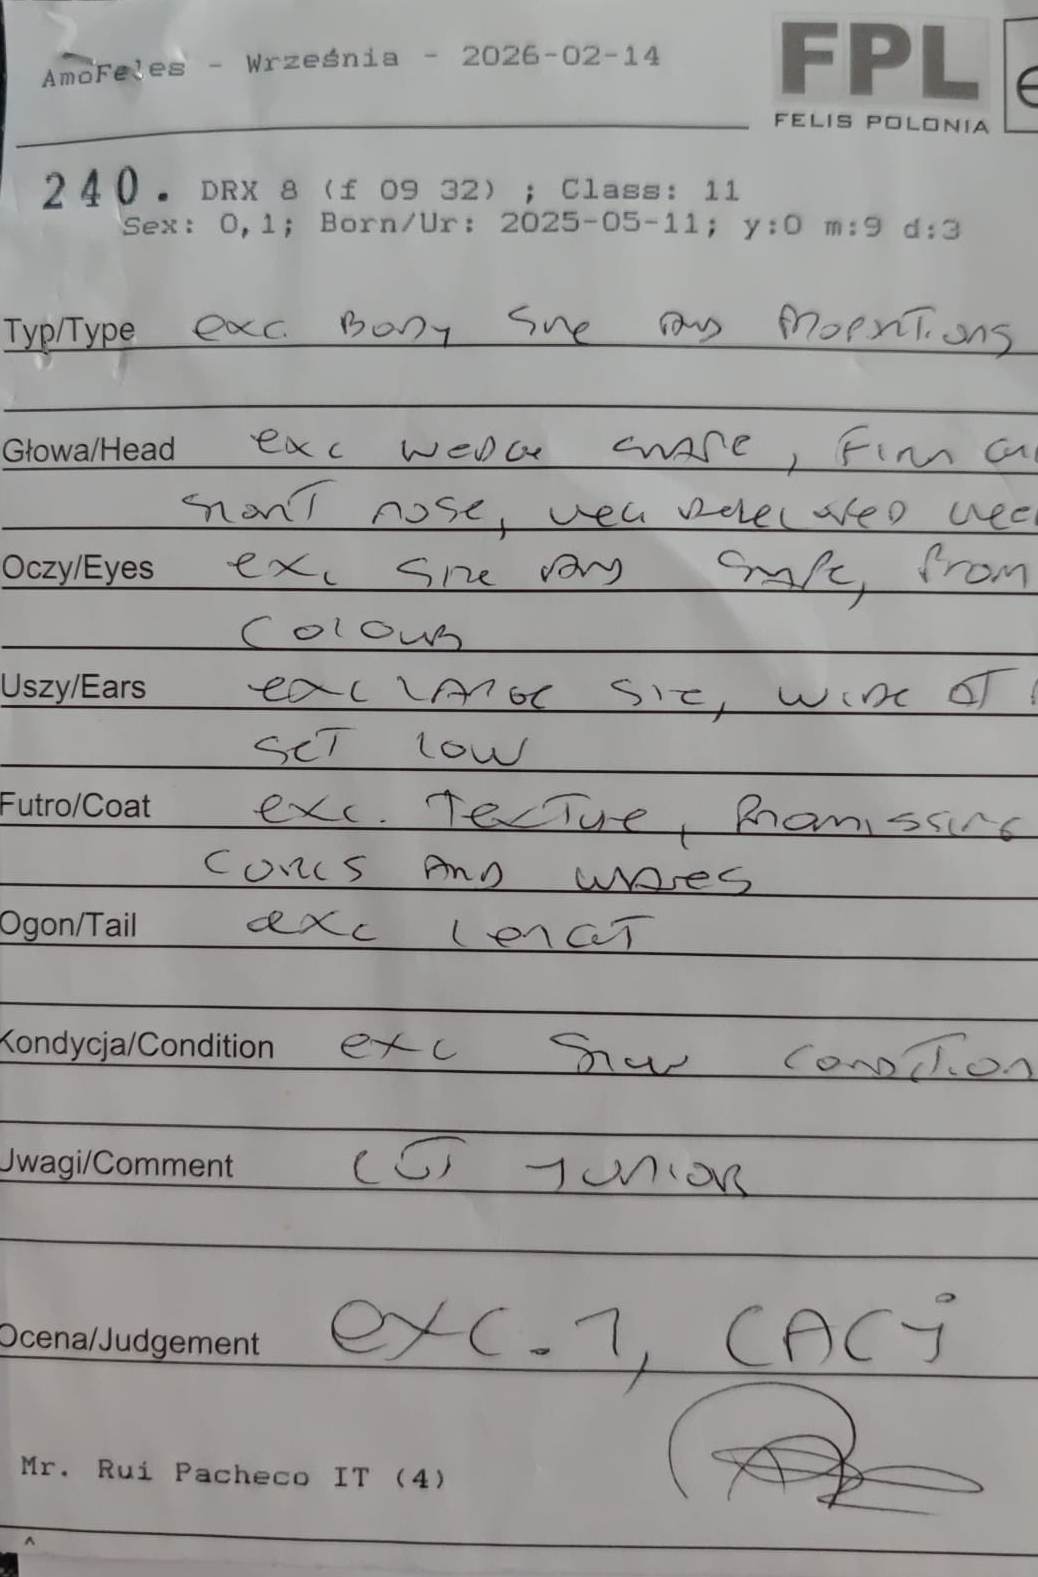 AmoFeles - Września - 2026-02-14
FPL
FELIS POLONIA
240. DRX 8 (f 09 32) ; Class: 11
Sex: 0,1; Born/Ur: 2025-05-11; y:0 m:9 d:3
Typ/Type exc. Body size and proportions
Głowa/Head exc wedge shape, Firm
short nose, well
Oczy/Eyes exc size and shape,
colour
Uszy/Ears exc large size, wide at
set low
Futro/Coat exc. Texture, Promissing
curls and waves
Ogon/Tail exc lengt
Kondycja/Condition exc Show condition
Uwagi/Comment Junior
Ocena/Judgement exc. 1, CACJ
Mr. Rui Pacheco IT (4)